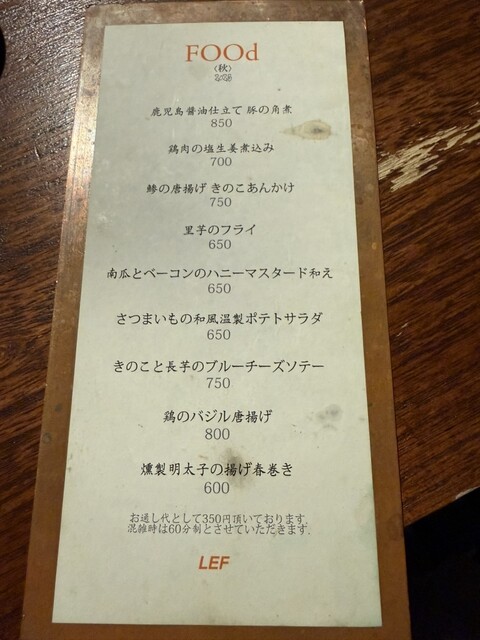 FOOd
〈秋〉
鹿児島醤油仕立て 豚の角煮
850
鶏肉の塩生姜煮込み
700
鯵の唐揚げ きのこあんかけ
750
里芋のフライ
650
南瓜とベーコンのハニーマスタード和え
650
さつまいもの和風温製ポテトサラダ
650
きのこと長芋のブルーチーズソテー
750
鶏のバジル唐揚げ
800
燻製明太子の揚げ春巻き
600
お通し代として350円頂いております。
混雑時は60分制とさせていただきます。
LEF